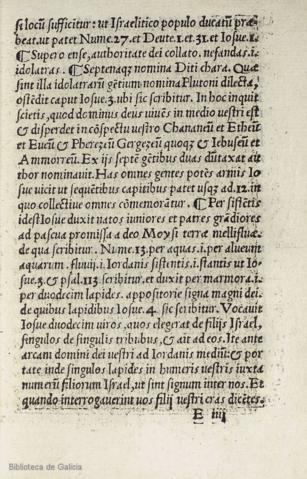 si locũ sufficitur: ut Israelitico populo ducatũ præ
beat. ut patet Nume. 27. et Deute. 1. et 31. et Iosue. 1.
¶ Supero ense, authoritate dei collato. nefandas. i.
idolatras. ¶ Septenaq; nomina Diti chara. Quæ
sint illa idolatrarũ gẽtium nomina Plutoni dilecta,
ostẽdit caput Iosue. 3. ubi sic scribitur. In hoc inquit
scietis, quod dominus deus viuẽs in medio vestri est
& disperdet in cõspectu vestro Chananeũ et Etheũ
et Eueũ & Pherezeũ Gergezeũ quoq; & Iebuseũ et
Ammorreũ. Ex ijs septẽ gẽtibus duas dũtaxat aũ
thor nominauit. Has omnes gentes potẽs armis Io
sue vicit ut sequẽtibus capitibus patet usq; ad. 12. in
quo collective omnes cõmemorãtur. ¶ Per sistẽtis
idest Iosue duxit natos iuniores et patres grãdiores
ad pascua promissa a deo Moysi terræ mellifluæ.
de qua scribitur. Nume. 13. per aquas. i. per alueum
aquarum. fluuij. i. Iordanis sistentis. i. stantis ut Io-
sue. 3. & psal. 113. scribitur. et duxit per marmora. i.
per duodecim lapides. appositorie signa magni dei.
de quibus lapidibus Iosue. 4. sic scribitur. Vocauit
Iosue duodecim viros, quos elegerat de filijs Israel,
singulos de singulis tribubus, & ait ad eos. Ite ante
arcam domini dei vestri ad Iordanis mediũ: & por
tate inde singulos lapides in humeris vestris iuxta
numerũ filiorum Israel, ut sint signum inter nos. Et
quando interrogauerint uos filij vestri cras dicẽtes.
E iiij
Biblioteca de Galicia